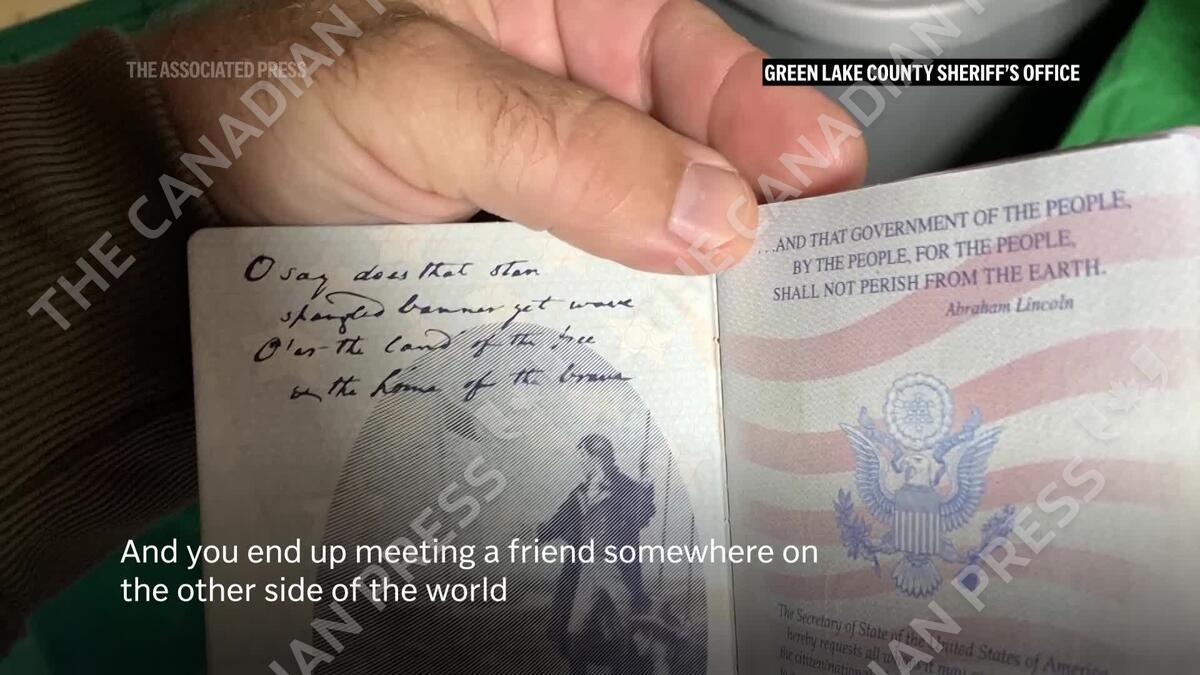 THE ASSOCIATED PRESS
GREEN LAKE COUNTY SHERIFF'S OFFICE
THE CANADIAN PRESS
O say does that star
spangled banner yet wave
O'er the land of the free
the home of the brave
...AND THAT GOVERNMENT OF THE PEOPLE,
BY THE PEOPLE, FOR THE PEOPLE,
SHALL NOT PERISH FROM THE EARTH.
Abraham Lincoln
And you end up meeting a friend somewhere on
the other side of the world
The Secretary of State of the United States of America
hereby requests all